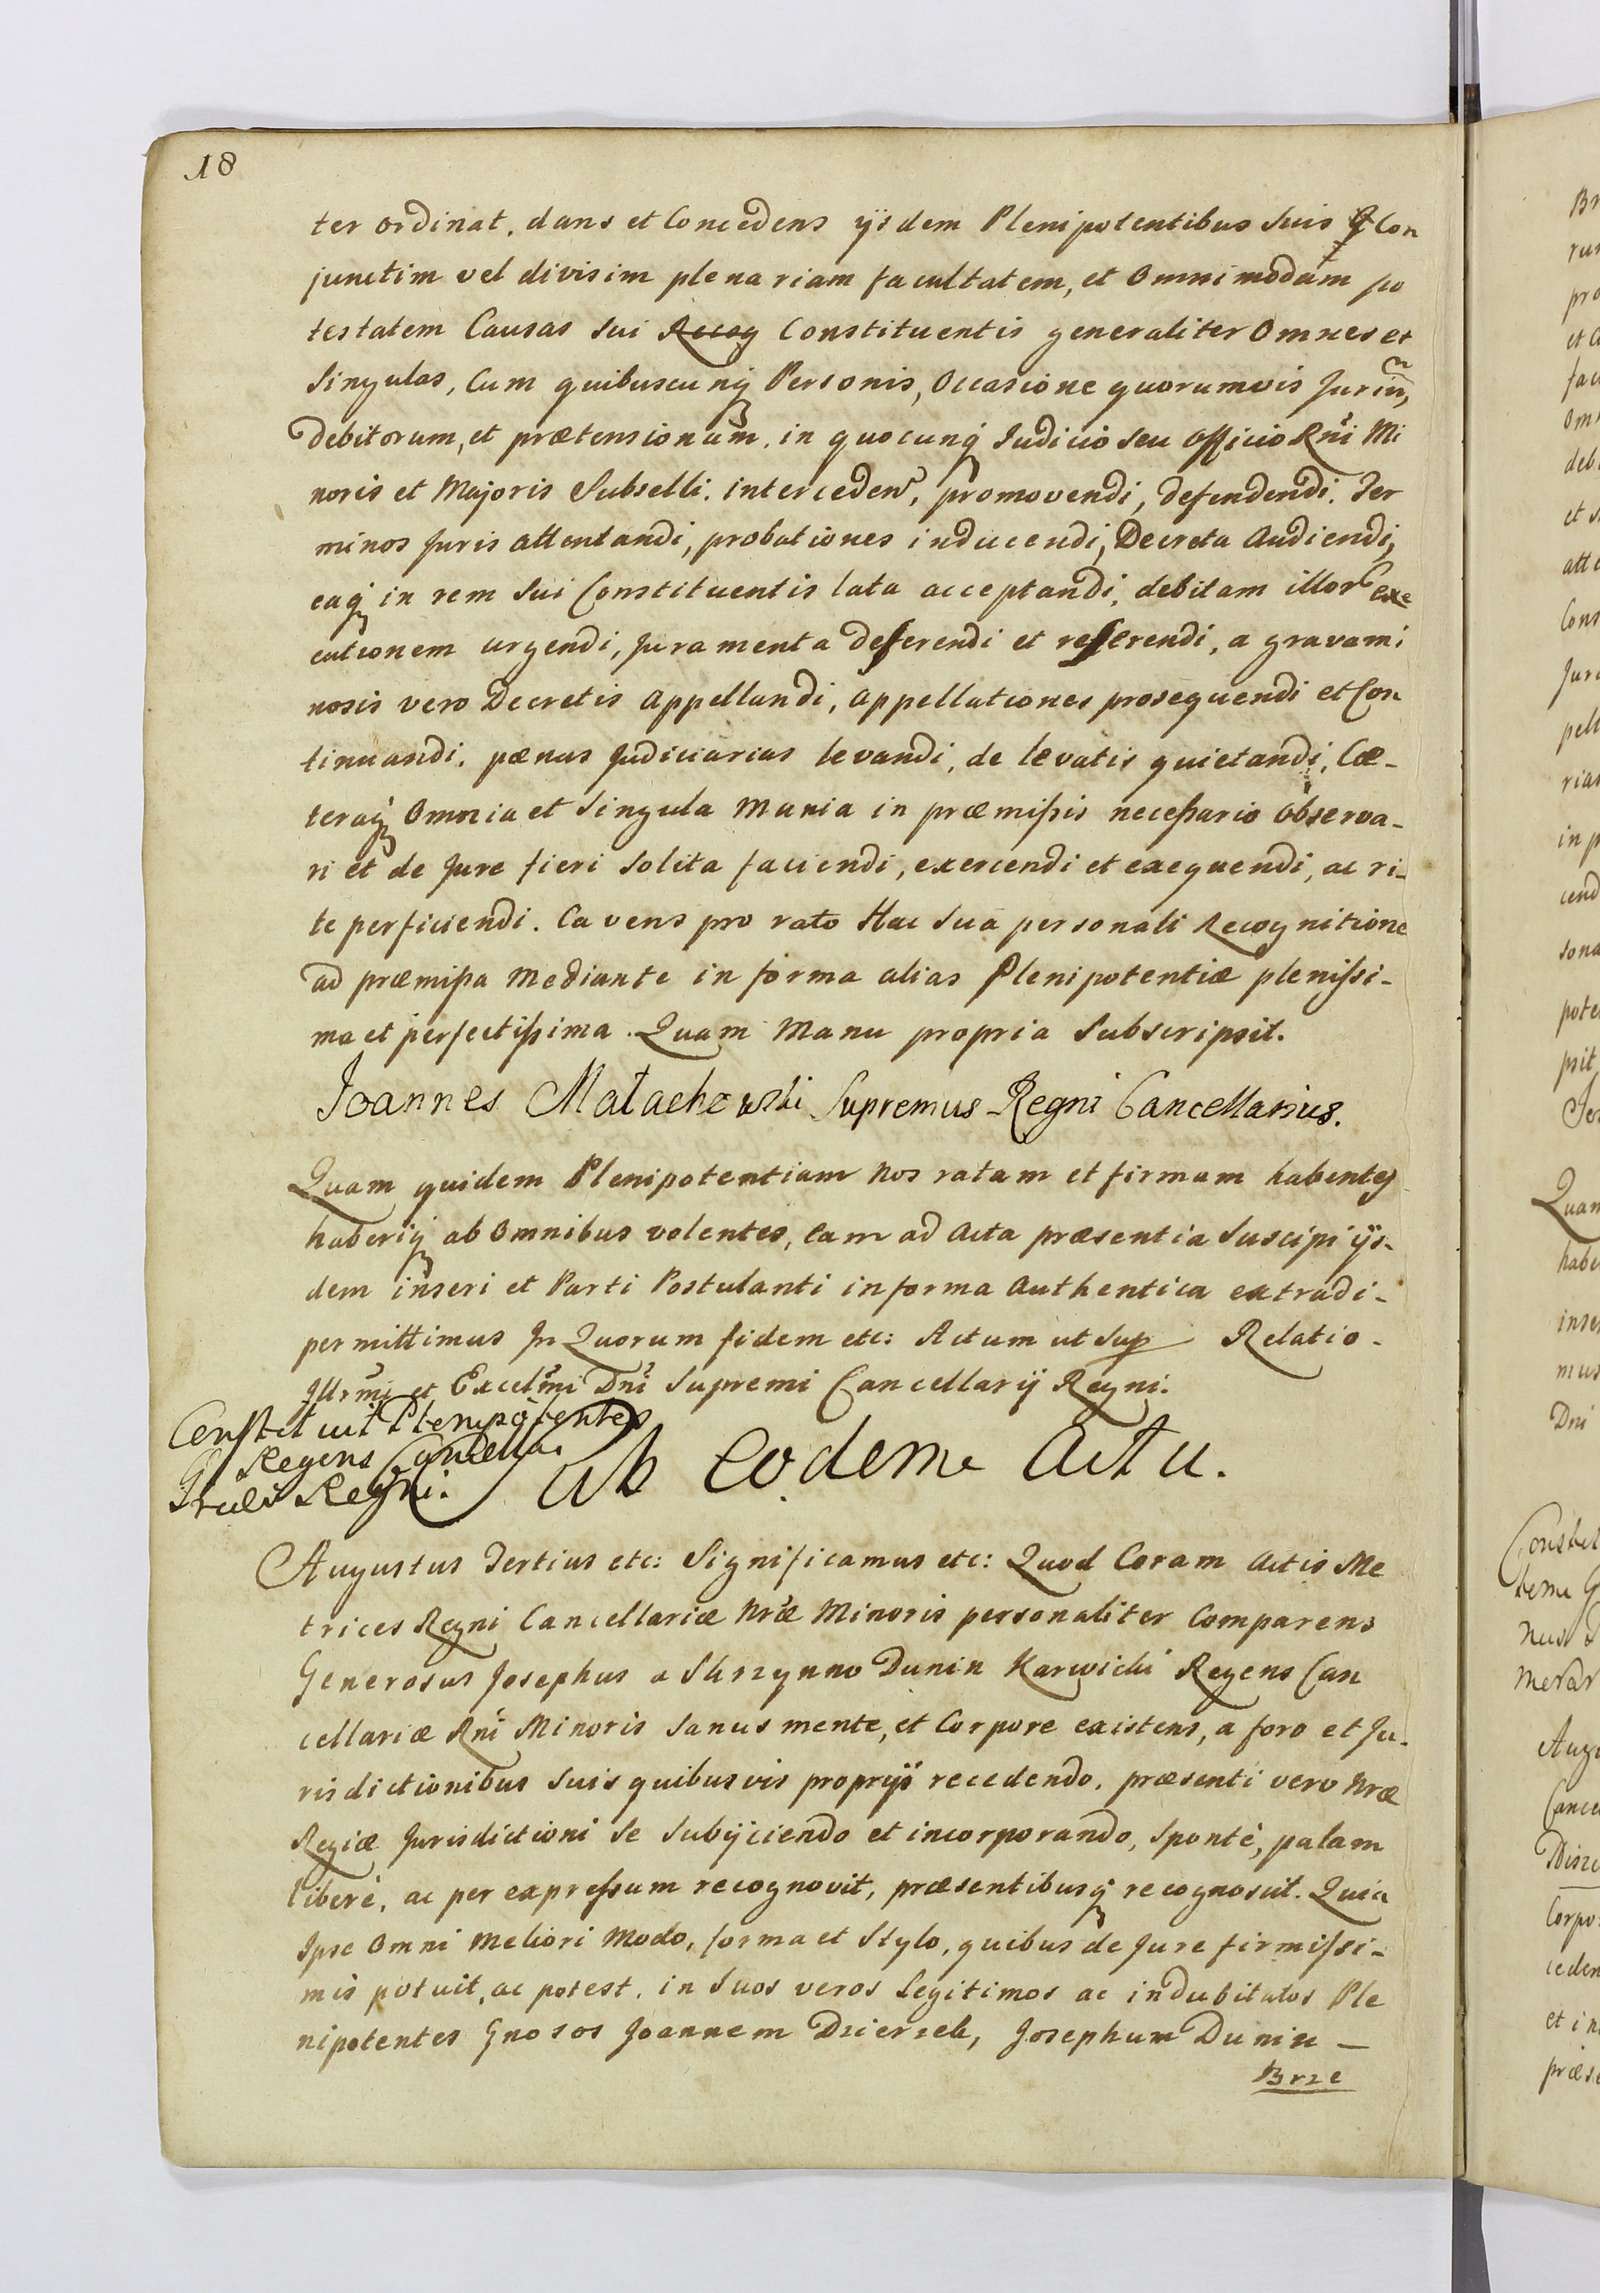 18
ter ordinat. dans et Concedens ijsdem Plenipotentibus Suis Con
junctim vel divisim plenariam facultatem, et Omnimodam po
testatem Causas Sui Recog Constituentis generaliter Omnes et
Singulas, Cum quibuscunq Personis, Occasione quorumvis Juriu,
debitorum, et prætensionum. in quocunq Iudicio seu officio Rni Mi
noris et Majoris Subselli. interceden, promovendi, defendendi. Ter
minos Juris attentandi, probationes inducendi, Decreta Audiendi,
eaq in rem Sui Constituentis lata acceptandi, debitam illor exe
cutionem urgendi, Juramenta deferendi et referendi, a gravami
nosis vero Decretis Appellandi, appellationes prosequendi et Con
tinuandi. pænas Judiciarias levandi, de levatis quietandi, Cæ-
teraq Omnia et Singula Munia in præmißis neceßario Observa-
ri et de Jure fieri Solita faciendi, exercendi et exequendi, ac ri-
te perficiendi. Cavens pro rato Hac Sua personali Recognitione
ad præmißa Mediante in forma alias Plenipotentiæ plenissi-
ma et perfectißima. Quam Manu propria Subscripsit.
Joannes Małachowski Supremus Regni Cancellarius.
Quam quidem Plenipotentiam Nos ratam et firmam habentes
haberiq ab Omnibus volentes, Eam ad Acta præsentia Suscipi ijs-
dem inseri et Parti Postulanti in forma Authentica extradi-
permittimus In Quorum fidem etc: Actum ut Sup Relatio-
Illrmi et Excelmi Dni Supremi Cancellarij Regni.
Constituit Plenipotentes
G Regens Cancellar
Regni.
Ab Eodem Actu.
Augustus Tertius etc: Significamus etc: Quod Coram Actis Me
trices Regni Cancellariæ Nræ Minoris personaliter Comparens
Generosus Josephus a Skrzynno Dunin Karwicki Regens Can
cellariæ Rni Minoris Sanus mente, et Corpore existens, a foro et Ju-
risdictionibus Suis quibusvis proprijs recedendo, præsenti vero Nræ
Regiæ Jurisdictioni Se Subijciendo et incorporando, Spontè, palam
liberè, ac per expressum recognovit, præsentibusq recognoscit. Quia
Ipse Omni Meliori Modo, forma et Stylo, quibus de Jure firmissi-
mis potuit, ac potest, in Suos veros Legitimos ac indubitatos Ple
nipotentes Gnosos Joannem Dzierzek, Josephum Dunin -
Brze